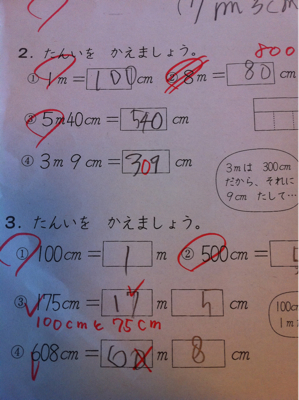 1m 3cm
2. たんいを かえましょう。
800
① 1m = 100 cm ② 8m = 80 cm
③ 5m40cm = 540 cm
④ 3m 9cm = 309 cm
3mは 300cm
だから、それに
9cm たして…
3. たんいを かえましょう。
① 100cm = 1 m ② 500cm = 5
③ 175cm = 17 m 5 cm
100cmと 75cm
100c
1m
④ 608cm = 60 m 8 cm